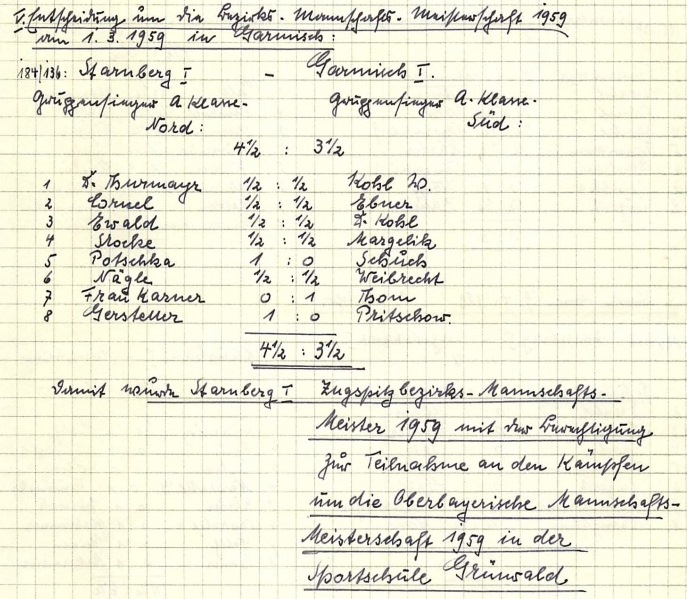 V. Entscheidung um die Bezirks-Mannschafts-Meisterschaft 1959
am 1.3.1959 in Garmisch:
184/136: Starnberg I - Garmisch I.
Gruppensieger A Klasse- Gruppensieger A-Klasse-
Nord: Süd:
4½ : 3½
1 Dr. Thurmayr ½ : ½ Kohl W.
2 Cornel ½ : ½ Ebner
3 Ewald ½ : ½ Dr. Kohl
4 Srocke ½ : ½ Margelik
5 Potschka 1 : 0 Schuch
6 Nägle ½ : ½ Weibrecht
7 Frau Karner 0 : 1 Thom
8 Gerstetter 1 : 0 Pritschow.
4½ : 3½
Damit wurde Starnberg I Zugspitzbezirks-Mannschafts-
Meister 1959 mit der Berechtigung
zur Teilnahme an den Kämpfen
um die Oberbayerische Mannschafts-
Meisterschaft 1959 in der
Sportschule Grünwald